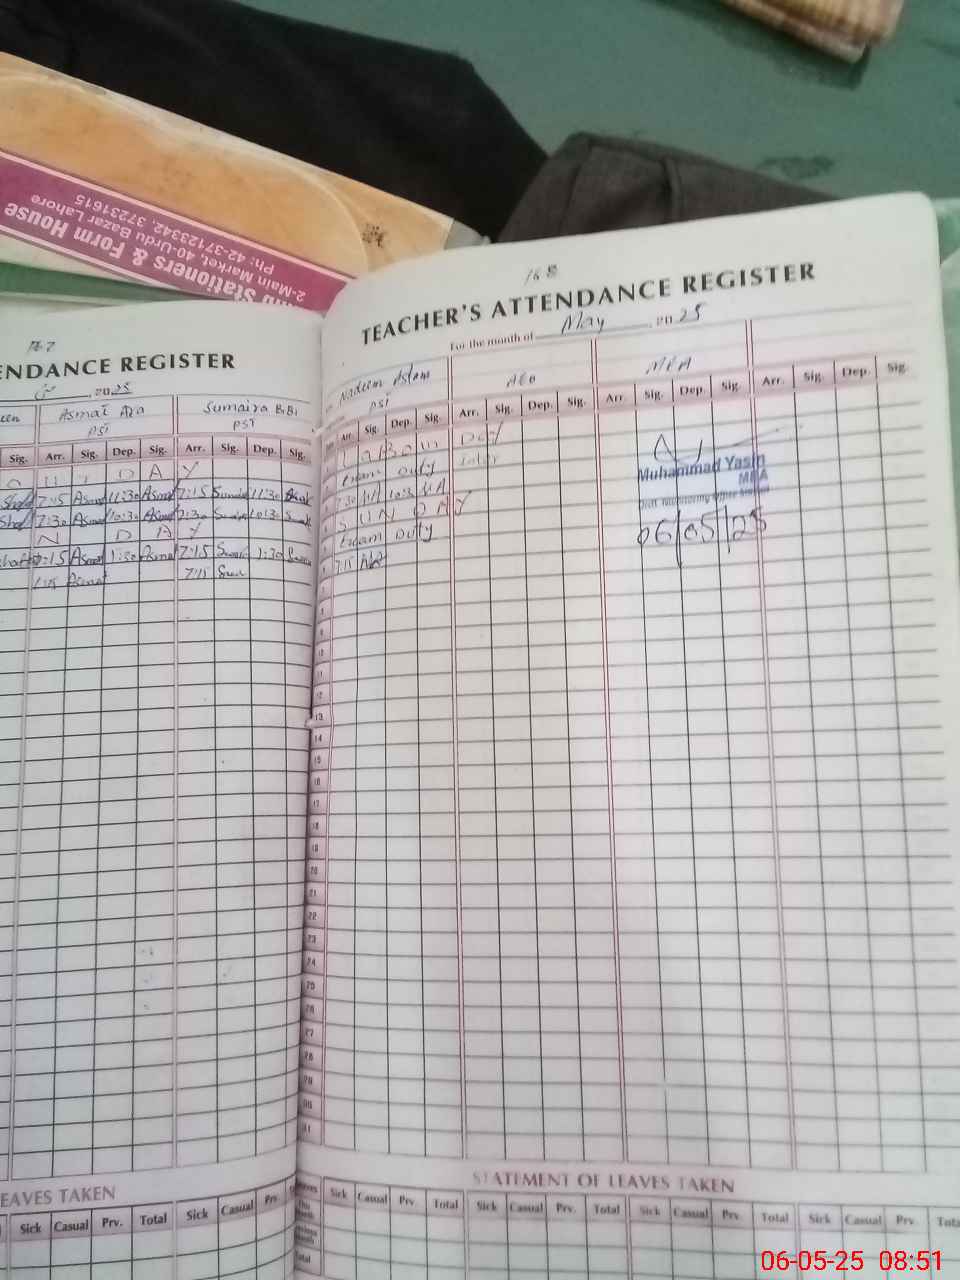 Stationers & Form House
2-Main Market, 40-Urdu Bazar Lahore
Ph: 42-37123342, 37231615
167
ENDANCE REGISTER
2025
een Asmat Ara Sumaira BiBi
PST PST
Sig. Arr. Sig. Dep. Sig. Arr. Sig. Dep. Sig.
7:15 Asmat 11:30 Asmat 7:15 11:30
7:30 Asmat 10:30 Asmat 7:30 10:30
N D A Y
7:15 Asmat 1:30 Asmat 7:15 1:30
7:15 Asmat 7:15
EAVES TAKEN
Sick Casual Prv. Total Sick Casual Prv.
168
TEACHER'S ATTENDANCE REGISTER
For the month of May, 2025
Nadeem Aslam AEO MEA
PST
Arr. Sig. Dep. Sig. Arr. Sig. Dep. Sig. Arr. Sig. Dep. Sig. Arr. Sig. Dep. Sig.
Labour Day
Exam Duty
7:30 NA 10:30 NA
SUNDAY
Exam Duty
7:15 NA
Muhammad Yasin
MEA
06/05/25
12
13
14
15
16
17
18
19
20
21
22
23
24
25
26
27
28
29
30
31
STATEMENT OF LEAVES TAKEN
Sick Casual Prv. Total Sick Casual Prv. Total Sick Casual Prv. Total Sick Casual Prv. Tota
Total
06-05-25 08:51